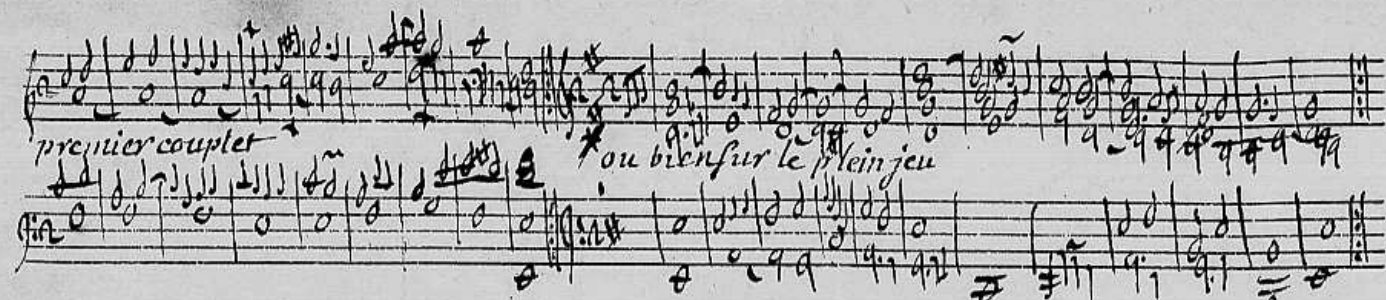 premier couplet
ou bien sur le plein jeu